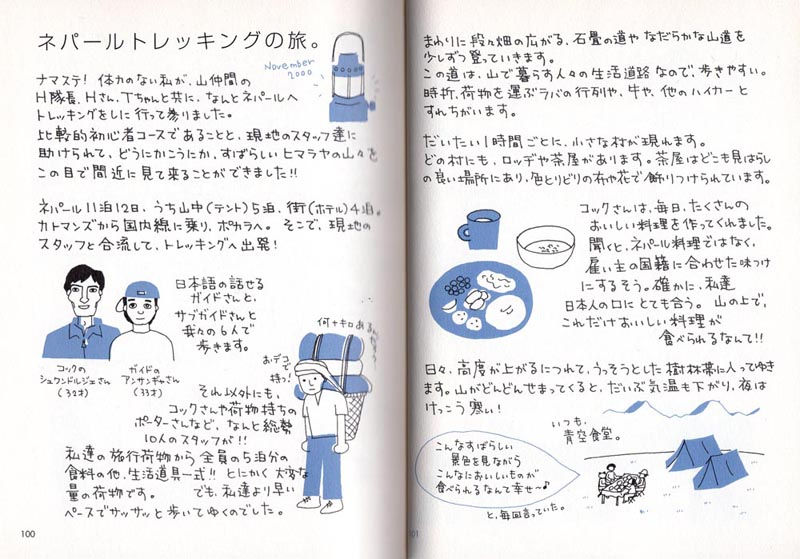 ネパールトレッキングの旅。
November
2000
ナマステ! 体力のない私が、山仲間の
H隊長、Hさん、Tちゃんと共に、なんとネパールへ
トレッキングをしに行って参りました。
比較的初心者コースであることと、現地のスタッフ達に
助けられて、どうにかこうにか、すばらしいヒマラヤの山々を
この目で間近に見て来ることができました!!
ネパール11泊12日、うち山中(テント)5泊、街(ホテル)4泊。
カトマンズから国内線に乗り、ポカラへ。そこで、現地の
スタッフと合流して、トレッキングへ出発!
日本語の話せる
ガイドさんと、
サブガイドさんと
我々の6人で
歩きます。
コックの
シュワンドルジェさん
(32才)
ガイドの
アンサンギャさん
(33才)
何十キロあるんだろう
おデコで
持つ!
それ以外にも、
コックさんや荷物持ちの
ポーターさんなど、なんと総勢
10人のスタッフが!!
私達の旅行荷物から全員の5泊分の
食料の他、生活道具一式!! とにかく大変な
量の荷物です。 でも、私達より早い
ペースでサッサッと歩いてゆくのでした。
100
まわりに段々畑の広がる、石畳の道やなだらかな山道を
少しずつ登っていきます。
この道は、山で暮らす人々の生活道路なので、歩きやすい。
時折、荷物を運ぶラバの行列や、牛や、他のハイカーと
すれちがいます。
だいたい1時間ごとに、小さな村が現れます。
どの村にも、ロッヂや茶屋があります。茶屋はどこも見はらし
の良い場所にあり、色とりどりの布や花で飾りつけられています。
コックさんは、毎日、たくさんの
おいしい料理を作ってくれました。
聞くと、ネパール料理ではなく、
雇い主の国籍に合わせた味つけ
にするそう。確かに、私達
日本人の口にとても合う。山の上で、
これだけおいしい料理が
食べられるなんて!!
日々、高度が上がるにつれて、うっそうとした樹林帯に入ってゆき
ます。山がどんどんせまってくると、だいぶ気温も下がり、夜は
けっこう寒い!
いつも、
青空食堂。
こんなすばらしい
景色を見ながら
こんなにおいしいものが
食べられるなんて幸せ〜♪
と、毎回言っていた。
101